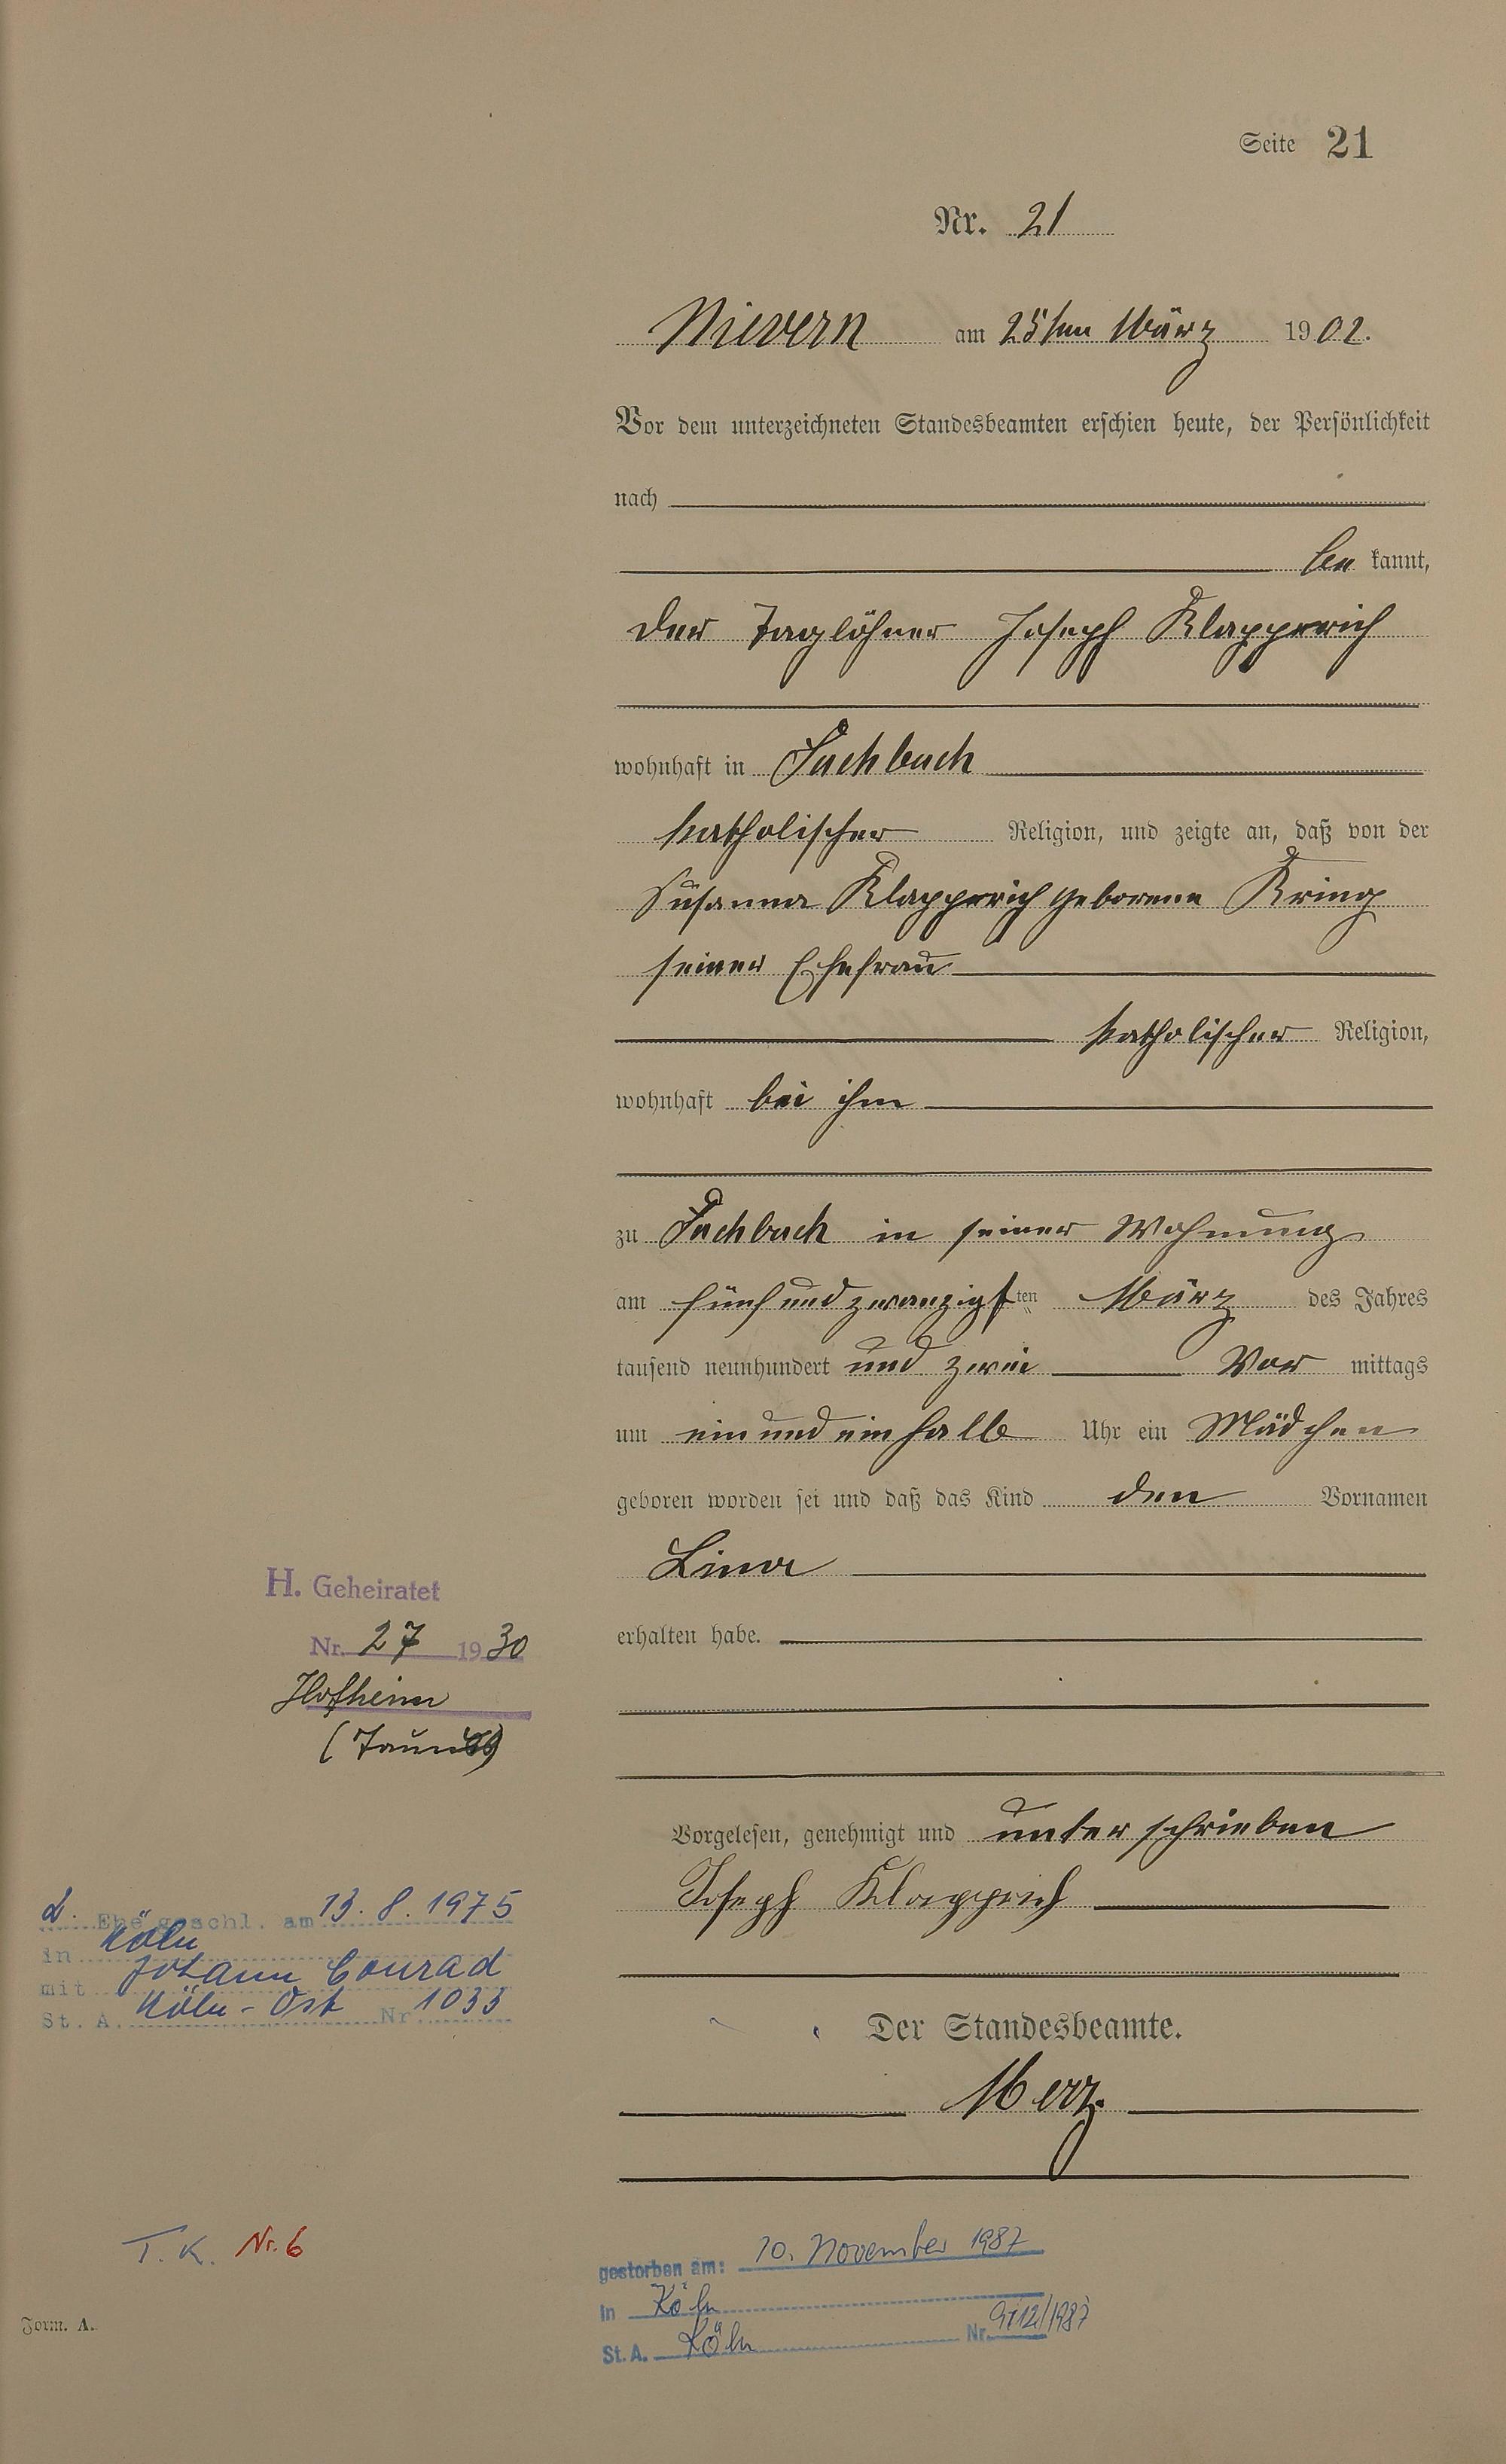 Seite 21
Nr. 21
Nievern am 25ten März 1902.
Vor dem unterzeichneten Standesbeamten erschien heute, der Persönlichkeit
nach
be kannt,
der Taglöhner Joseph Klapperich
wohnhaft in Fachbach
katholischer Religion, und zeigte an, daß von der
Susanna Klapperich geborene Kring
seiner Ehefrau
katholischer Religion,
wohnhaft bei ihm
zu Fachbach in seiner Wohnung
am fünf und zwanzigsten März des Jahres
tausend neunhundert und zwei Vor mittags
um ein und ein halb Uhr ein Mädchen
geboren worden sei und daß das Kind den Vornamen
Lina
erhalten habe.
H. Geheiratet
Nr. 27 1930
Hofheim
(Taunus)
Vorgelesen, genehmigt und unterschrieben
Joseph Klapprich
2. Ehe geschl. am 13. 8. 1975
in Köln
mit Johann Conrad
St. A. Köln-Ost Nr 1033
Der Standesbeamte.
Merz.
T. K. Nr. 6
gestorben am: 10. November 1987
in Köln
St. A. Köln Nr. /1987
Form. A.